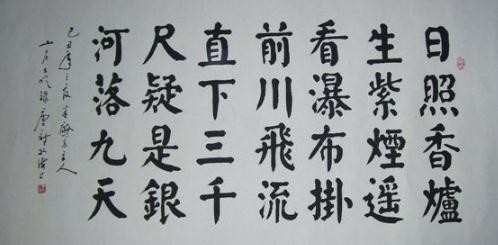 日照香爐
生紫煙遥
看瀑布掛
前川飛流
直下三千
尺疑是銀
河落九天